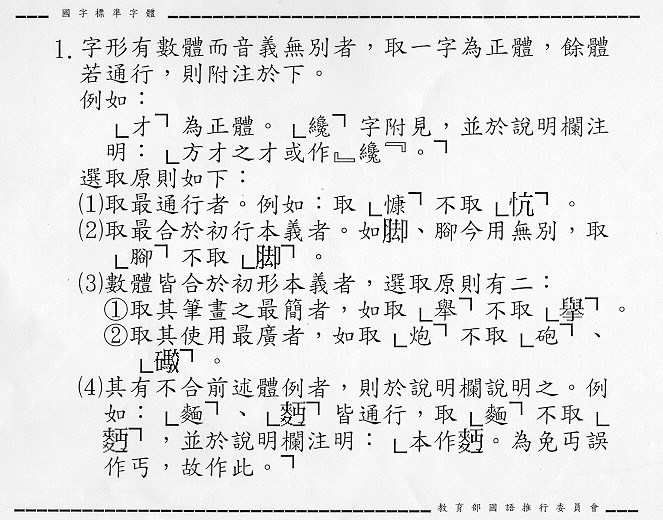 國字標準字體
1. 字形有數體而音義無別者，取一字為正體，餘體
若通行，則附注於下。
例如：
「才」為正體。「纔」字附見，並於說明欄注
明：「方才之才或作『纔』。」
選取原則如下：
⑴取最通行者。例如：取「慷」不取「忼」。
⑵取最合於初行本義者。如脚、腳今用無別，取
「腳」不取「脚」。
⑶數體皆合於初形本義者，選取原則有二：
①取其筆畫之最簡者，如取「舉」不取「擧」。
②取其使用最廣者，如取「炮」不取「砲」、
「礮」。
⑷其有不合前述體例者，則於說明欄說明之。例
如：「麵」、「麪」皆通行，取「麵」不取「
麪」，並於說明欄注明：「本作麪。為免丏誤
作丐，故作此。」
教育部國語推行委員會